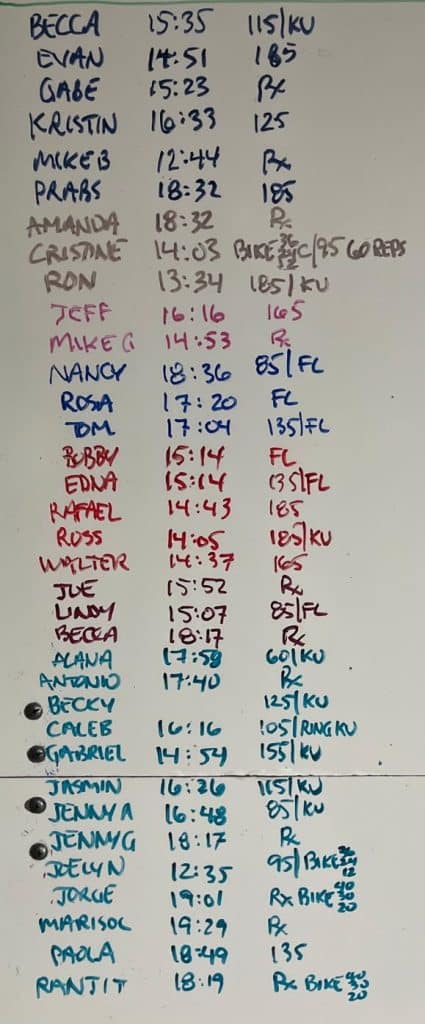 BECCA 15:35 115/KU
EVAN 14:51 185
GABE 15:23 Rx
KRISTIN 16:33 125
MIKE B 12:44 Rx
PRABS 18:32 185
AMANDA 18:32 Rx
CRISTINE 14:03 BIKE 36 24 12 C/95 60 REPS
RON 13:34 185/KU
JEFF 16:16 165
MIKE G 14:53 Rx
NANCY 18:36 85/FL
ROSA 17:20 FL
TOM 17:04 135/FL
BOBBY 15:14 FL
EDNA 15:14 135/FL
RAFAEL 14:43 185
ROSS 14:05 185/KU
WALTER 14:37 165
JOE 15:52 Rx
LINDY 15:07 85/FL
BECCA 18:17 Rx
ALANA 17:58 60/KU
ANTONIO 17:40 Rx
BECKY 125/KU
CALEB 16:16 105/RING KU
GABRIEL 14:54 155/KU
JASMIN 16:26 115/KU
JENNY A 16:48 85/KU
JENNY G 18:17 Rx
JOELYN 12:35 95/BIKE 36 24 12
JORGE 19:01 Rx BIKE 40 30 20
MARISOL 19:29 Rx
PAOLA 18:49 135
RANJIT 18:19 Rx BIKE 40 30 20